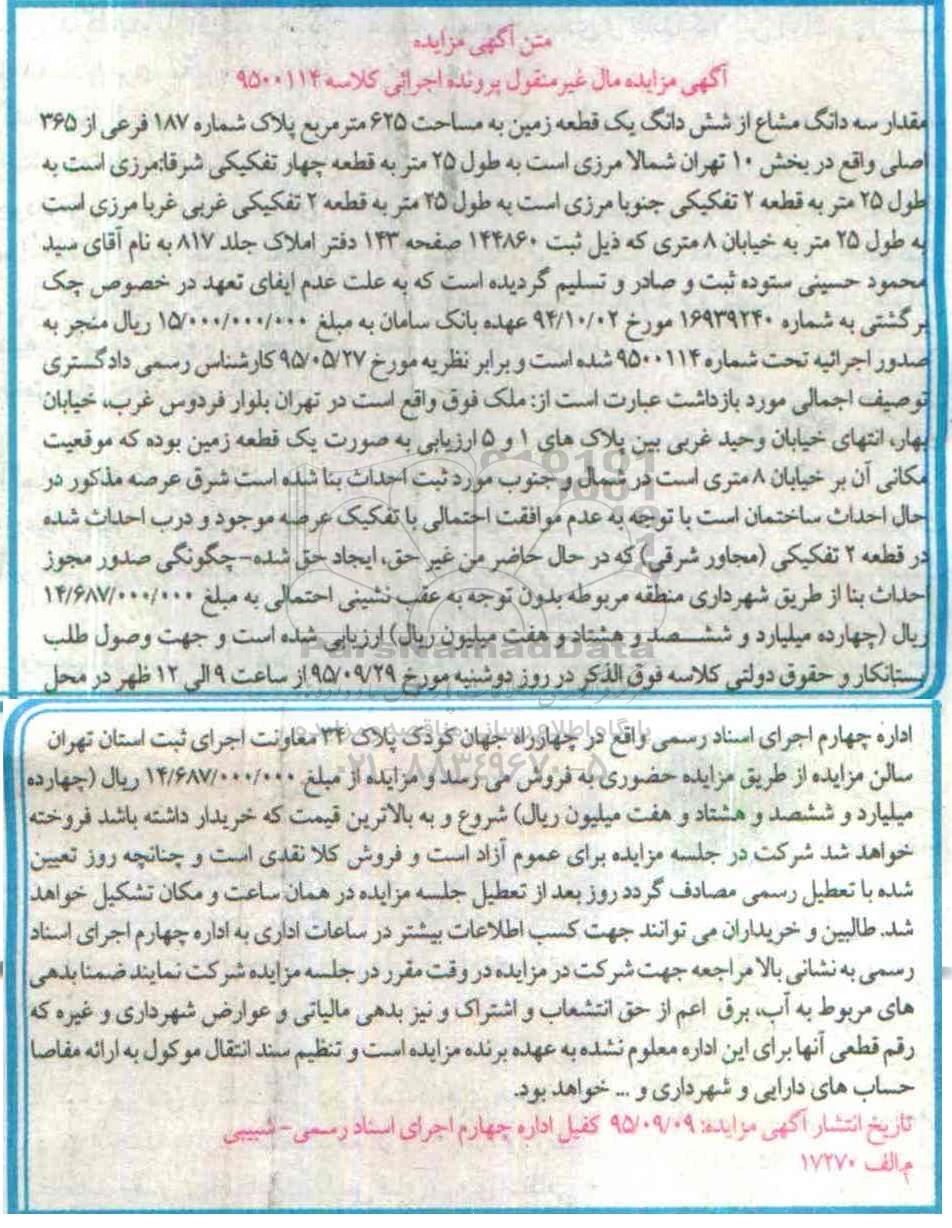 متن آگهی مزایده
آگهی مزایده مال غیرمنقول پرونده اجرائی کلاسه ۹۵۰۰۱۱۴
مقدار سه دانگ مشاع از شش دانگ یک قطعه زمین به مساحت ۶۲۵ مترمربع پلاک شماره ۱۸۷ فرعی از ۳۶۵
اصلی واقع در بخش ۱۰ تهران شمالا مرزی است به طول ۲۵ متر به قطعه چهار تفکیکی شرقا:مرزی است به
طول ۲۵ متر به قطعه ۲ تفکیکی جنوبا مرزی است به طول ۲۵ متر به قطعه ۲ تفکیکی غربی غربا مرزی است
به طول ۲۵ متر به خیابان ۸ متری که ذیل ثبت ۱۴۴۸۶۰ صفحه ۱۴۳ دفتر املاک جلد ۸۱۷ به نام آقای سید
محمود حسینی ستوده ثبت و صادر و تسلیم گردیده است که به علت عدم ایفای تعهد در خصوص چک
برگشتی به شماره ۱۶۹۳۹۲۴۰ مورخ ۹۴/۱۰/۰۲ عهده بانک سامان به مبلغ ۱۵/۰۰۰/۰۰۰/۰۰۰ ریال منجر به
صدور اجرائیه تحت شماره ۹۵۰۰۱۱۴ شده است و برابر نظریه مورخ ۹۵/۰۵/۲۷ کارشناس رسمی دادگستری
توصیف اجمالی مورد بازداشت عبارت است از: ملک فوق واقع است در تهران بلوار فردوس غرب، خیابان
بهار، انتهای خیابان وحید غربی بین پلاک های ۱ و ۵ ارزیابی به صورت یک قطعه زمین بوده که موقعیت
مکانی آن بر خیابان ۸ متری است در شمال و جنوب مورد ثبت احداث بنا شده است شرق عرصه مذکور در
حال احداث ساختمان است با توجه به عدم موافقت احتمالی با تفکیک عرصه موجود و درب احداث شده
در قطعه ۲ تفکیکی (مجاور شرقی) که در حال حاضر من غیر حق، ایجاد حق شده-چگونگی صدور مجوز
احداث بنا از طریق شهرداری منطقه مربوطه بدون توجه به عقب نشینی احتمالی به مبلغ ۱۴/۶۸۷/۰۰۰/۰۰۰
ریال (چهارده میلیارد و ششصد و هشتاد و هفت میلیون ریال) ارزیابی شده است و جهت وصول طلب
بستانکار و حقوق دولتی کلاسه فوق الذکر در روز دوشنبه مورخ ۹۵/۰۹/۲۹ از ساعت ۹ الی ۱۲ ظهر در محل
اداره چهارم اجرای اسناد رسمی واقع در چهارراه جهان کودک پلاک ۳۴ معاونت اجرای ثبت استان تهران
سالن مزایده از طریق مزایده حضوری به فروش می رسد و مزایده از مبلغ ۱۴/۶۸۷/۰۰۰/۰۰۰ ریال (چهارده
میلیارد و ششصد و هشتاد و هفت میلیون ریال) شروع و به بالاترین قیمت که خریدار داشته باشد فروخته
خواهد شد شرکت در جلسه مزایده برای عموم آزاد است و فروش کلا نقدی است و چنانچه روز تعیین
شده با تعطیل رسمی مصادف گردد روز بعد از تعطیل جلسه مزایده در همان ساعت و مکان تشکیل خواهد
شد. طالبین و خریداران می توانند جهت کسب اطلاعات بیشتر در ساعات اداری به اداره چهارم اجرای اسناد
رسمی به نشانی بالا مراجعه جهت شرکت در مزایده در وقت مقرر در جلسه مزایده شرکت نمایند ضمنا بدهی
های مربوط به آب، برق اعم از حق انتشعاب و اشتراک و نیز بدهی مالیاتی و عوارض شهرداری و غیره که
رقم قطعی آنها برای این اداره معلوم نشده به عهده برنده مزایده است و تنظیم سند انتقال موکول به ارائه مفاصا
حساب های دارایی و شهرداری و ... خواهد بود.
تاریخ انتشار آگهی مزایده: ۹۵/۰۹/۰۹ کفیل اداره چهارم اجرای اسناد رسمی-شبیبی
م.الف ۱۷۲۷۰
ParsNamadData
۰۲۱-۸۸۳۴۹۶۷۰-۵